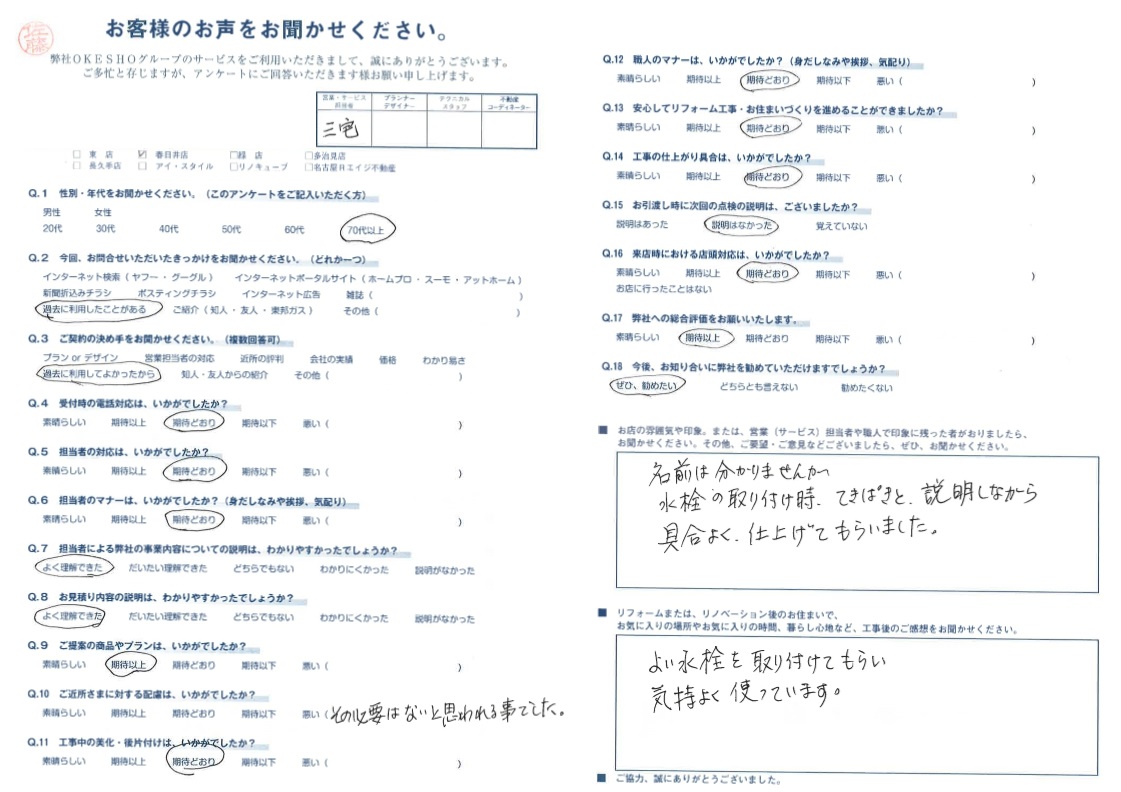 佐藤
お客様のお声をお聞かせください。
弊社OKESHOグループのサービスをご利用いただきまして、誠にありがとうございます。
ご多忙と存じますが、アンケートにご回答いただきます様お願い申し上げます。
営業・サービス担当者 プランナーデザイナー テクニカルスタッフ 不動産コーディネーター
三宅
□ 東 店 ☑ 春日井店 □緑 店 □多治見店
□ 長久手店 □ アイ・スタイル □リノキューブ □名古屋Rエイジ不動産
Q.1 性別・年代をお聞かせください。（このアンケートをご記入いただく方）
男性 女性
20代 30代 40代 50代 60代 70代以上
Q.2 今回、お問合せいただいたきっかけをお聞かせください。（どれか一つ）
インターネット検索（ ヤフー ・ グーグル ） インターネットポータルサイト（ ホームプロ ・ スーモ ・ アットホーム ）
新聞折込みチラシ ポスティングチラシ インターネット広告 雑誌（ ）
過去に利用したことがある ご紹介（ 知人 ・ 友人 ・ 東邦ガス ） その他（ ）
Q.3 ご契約の決め手をお聞かせください。（複数回答可）
プラン or デザイン 営業担当者の対応 近所の評判 会社の実績 価格 わかり易さ
過去に利用してよかったから 知人・友人からの紹介 その他（ ）
Q.4 受付時の電話対応は、いかがでしたか？
素晴らしい 期待以上 期待どおり 期待以下 悪い（ ）
Q.5 担当者の対応は、いかがでしたか？
素晴らしい 期待以上 期待どおり 期待以下 悪い（ ）
Q.6 担当者のマナーは、いかがでしたか？（身だしなみや挨拶、気配り）
素晴らしい 期待以上 期待どおり 期待以下 悪い（ ）
Q.7 担当者による弊社の事業内容についての説明は、わかりやすかったでしょうか？
よく理解できた だいたい理解できた どちらでもない わかりにくかった 説明がなかった
Q.8 お見積り内容の説明は、わかりやすかったでしょうか？
よく理解できた だいたい理解できた どちらでもない わかりにくかった 説明がなかった
Q.9 ご提案の商品やプランは、いかがでしたか？
素晴らしい 期待以上 期待どおり 期待以下 悪い（ ）
Q.10 ご近所さまに対する配慮は、いかがでしたか？
素晴らしい 期待以上 期待どおり 期待以下 悪い（ その必要はないと思われる事でした。
Q.11 工事中の美化・後片付けは、いかがでしたか？
素晴らしい 期待以上 期待どおり 期待以下 悪い（ ）
Q.12 職人のマナーは、いかがでしたか？（身だしなみや挨拶、気配り）
素晴らしい 期待以上 期待どおり 期待以下 悪い（ ）
Q.13 安心してリフォーム工事・お住まいづくりを進めることができましたか？
素晴らしい 期待以上 期待どおり 期待以下 悪い（ ）
Q.14 工事の仕上がり具合は、いかがでしたか？
素晴らしい 期待以上 期待どおり 期待以下 悪い（ ）
Q.15 お引渡し時に次回の点検の説明は、ございましたか？
説明はあった 説明はなかった 覚えていない
Q.16 来店時における店頭対応は、いかがでしたか？
素晴らしい 期待以上 期待どおり 期待以下 悪い（ ）
お店に行ったことはない
Q.17 弊社への総合評価をお願いいたします。
素晴らしい 期待以上 期待どおり 期待以下 悪い（ ）
Q.18 今後、お知り合いに弊社を勧めていただけますでしょうか？
ぜひ、勧めたい どちらとも言えない 勧めたくない
■ お店の雰囲気や印象。または、営業（サービス）担当者や職人で印象に残った者がおりましたら、
お聞かせください。その他、ご要望・ご意見などございましたら、ぜひ、お聞かせください。
名前は分かりませんが
水栓の取り付け時、てきぱきと、説明しながら
具合よく、仕上げてもらいました。
■ リフォームまたは、リノベーション後のお住まいで、
お気に入りの場所やお気に入りの時間、暮らし心地など、工事後のご感想をお聞かせください。
よい水栓を取り付けてもらい
気持よく使っています。
■ ご協力、誠にありがとうございました。